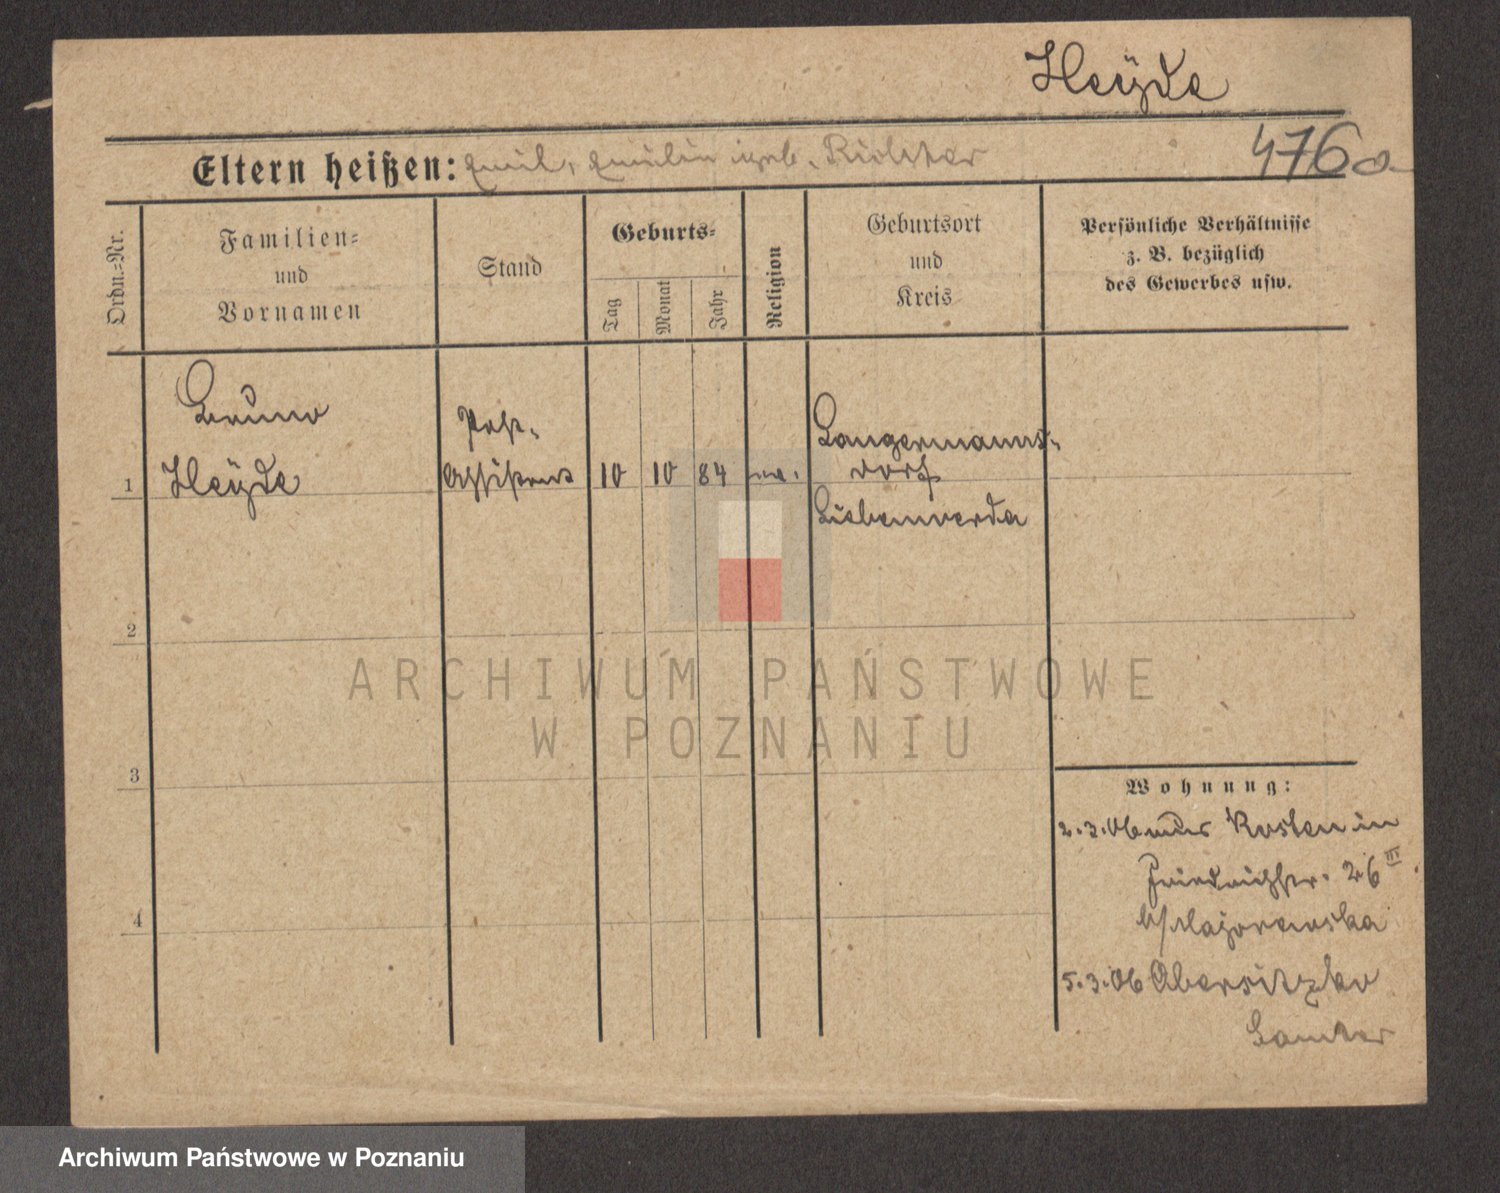 Heÿde
476a
Eltern heißen: Emil, Emilie geb. Richter
Ordn.=Nr.
Familien=
und
Vornamen
Stand
Geburts=
Tag
Monat
Jahr
Religion
Geburtsort
und
Kreis
Persönliche Verhältnisse
z. B. bezüglich
des Gewerbes usw.
1
Bruno
Heÿde
Post-
Assistent
10
10
84
ev.
Langermanns-
dorf
Liebenwerda
2
3
4
Wohnung:
2.3.06 aus Kosten in
Friedrichstr. 26 III
b/Majorewska
5.3.06 Obersitzko
Samter
ARCHIWUM PAŃSTWOWE
W POZNANIU
Archiwum Państwowe w Poznaniu